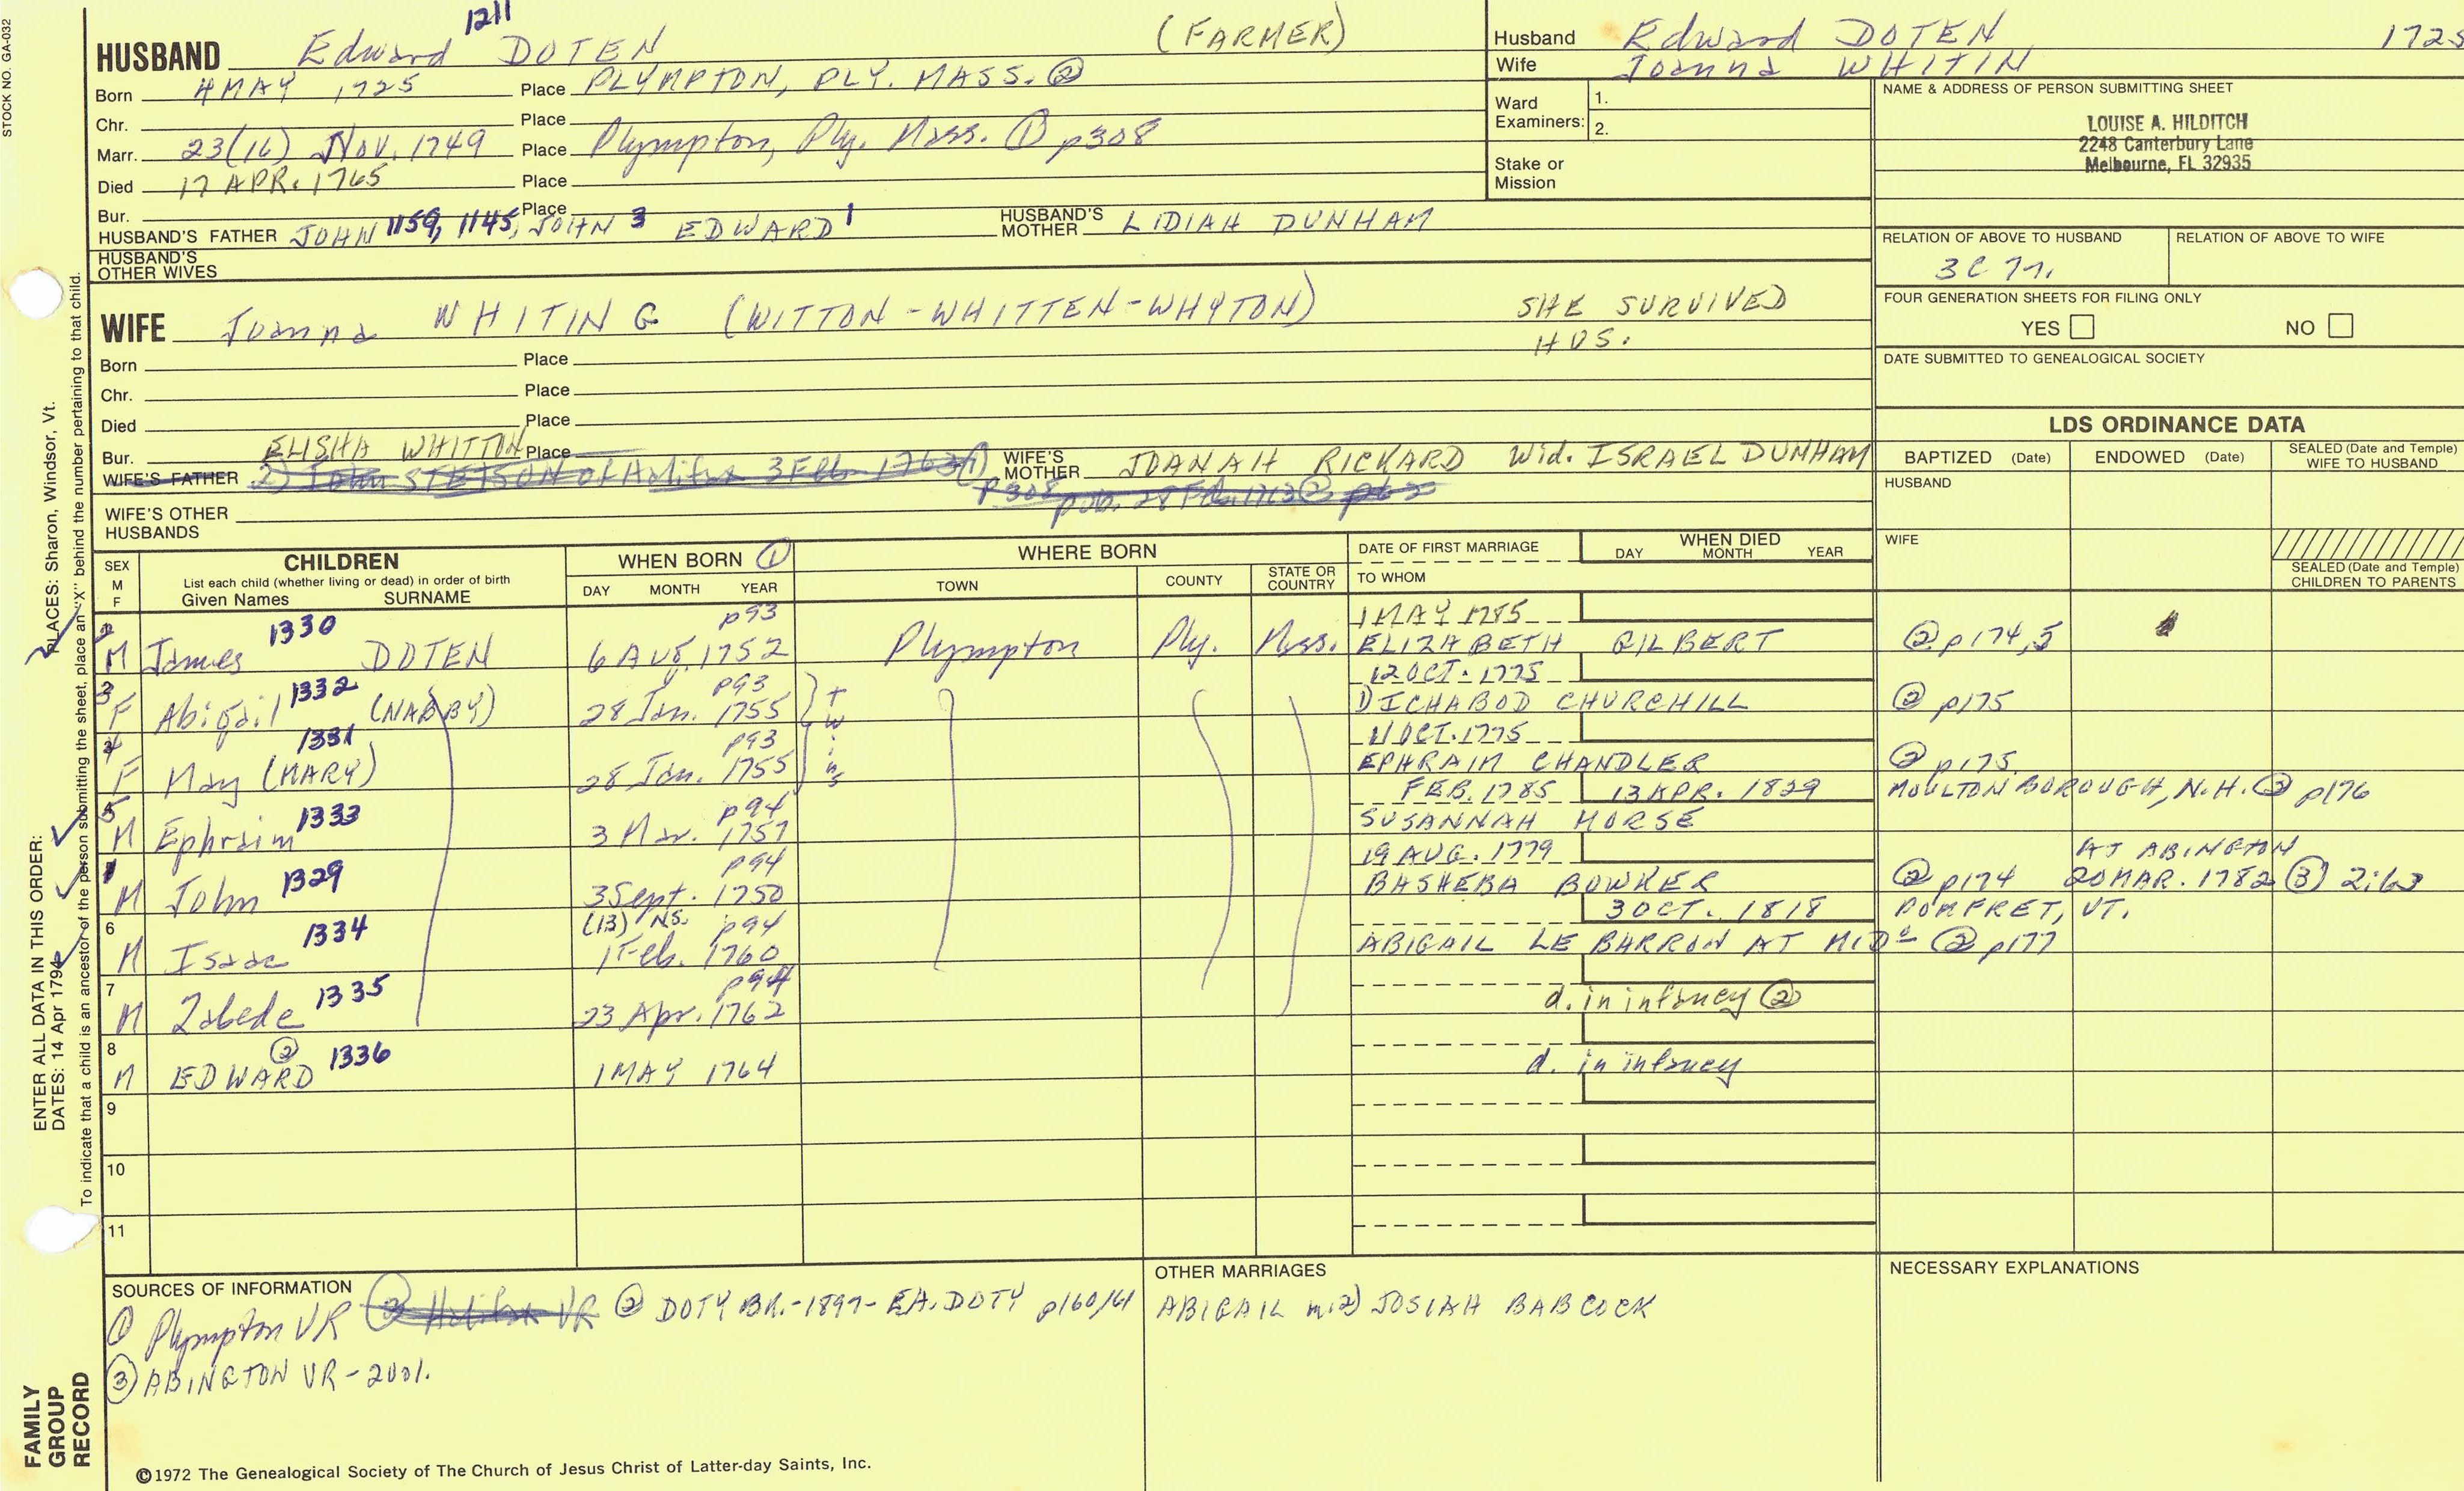 STOCK NO. GA-032
1211
HUSBAND Edward DOTEN (FARMER)
Born 4 MAY 1725 Place PLYMPTON, PLY. MASS. ②
Chr. Place
Marr. 23(16) Nov. 1749 Place Plympton, Ply. Mass. ① p308
Died 17 APR. 1765 Place
Bur. Place
HUSBAND'S FATHER JOHN 1159, 1145, JOHN 3 EDWARD 1 HUSBAND'S MOTHER LIDIAH DUNHAM
HUSBAND'S OTHER WIVES
WIFE Joanna WHITING (WITTON-WHITTEN-WHYTON) SHE SURVIVED
HUS.
Born Place
Chr. Place
Died Place
Bur. ELISHA WHITTON Place
WIFE'S FATHER 2) John STETSON of Halifax 3 Feb 1763 ① WIFE'S MOTHER JOANAH RICKARD Wid. ISRAEL DUNHAM
p308 pub. 28 Feb. 1763 ②
WIFE'S OTHER HUSBANDS
Husband Edward DOTEN 1725
Wife Joanna WHITIN
Ward Examiners: 1.
2.
Stake or Mission
NAME & ADDRESS OF PERSON SUBMITTING SHEET
LOUISE A. HILDITCH
2248 Canterbury Lane
Melbourne, FL 32935
RELATION OF ABOVE TO HUSBAND RELATION OF ABOVE TO WIFE
FOUR GENERATION SHEETS FOR FILING ONLY
YES NO
DATE SUBMITTED TO GENEALOGICAL SOCIETY
LDS ORDINANCE DATA
BAPTIZED (Date) ENDOWED (Date) SEALED (Date and Temple) WIFE TO HUSBAND
HUSBAND
WIFE
SEALED (Date and Temple) CHILDREN TO PARENTS
SEX M F CHILDREN List each child (whether living or dead) in order of birth Given Names SURNAME WHEN BORN ① DAY MONTH YEAR WHERE BORN TOWN COUNTY STATE OR COUNTRY DATE OF FIRST MARRIAGE TO WHOM WHEN DIED DAY MONTH YEAR
2 M James 1330 DOTEN 6 Aug. 1752 p93 Plympton Ply. Mass. 1 MAY 1785 ELIZABETH GILBERT ② p174,5
3 F Abigail 1332 (NABBY) 28 Jan. 1755 p93 twins 12 OCT. 1775 1) ICHABOD CHURCHILL ② p175
4 F May (MARY) 1331 28 Jan. 1755 p93 11 OCT. 1775 EPHRAIM CHANDLER ② p175
5 M Ephraim 1333 3 Mar. 1757 p94 FEB. 1785 SUSANNAH MORSE 13 APR. 1829 MOULTONBOROUGH, N.H. ② p176
1 M John 1329 3 Sept. 1750 p94 19 AUG. 1779 BASHEBA BOWKER ② p174 AT ABINGTON 20 MAR. 1782 ③ 2:63
6 M Isaac 1334 (13) N.S. 1 Feb. 1760 p94 3 OCT. 1818 POMFRET, VT. ABIGAIL LE BARRON AT MIDo ② p177
7 M Zabede 1335 23 Apr. 1762 p94 d. in infancy ②
8 M EDWARD ② 1336 1 MAY 1764 d. in infancy
9
10
11
SOURCES OF INFORMATION
① Plympton VR ② Halifax VR ② DOTY BK.-1897-EA. DOTY p160/61
③ ABINGTON VR-2001.
OTHER MARRIAGES
ABIGAIL m. 2) JOSIAH BABCOCK
NECESSARY EXPLANATIONS
©1972 The Genealogical Society of The Church of Jesus Christ of Latter-day Saints, Inc.
ENTER ALL DATA IN THIS ORDER:
DATES: 14 Apr 1794 PLACES: Sharon, Windsor, Vt.
To indicate that a child is an ancestor of the person submitting the sheet, place an "X" behind the number pertaining to that child.
FAMILY GROUP RECORD